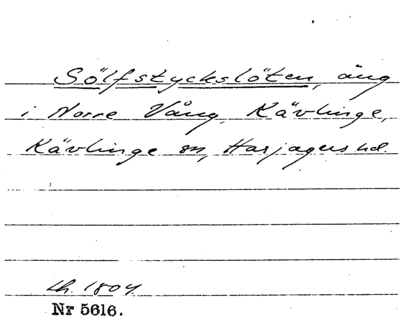 Sölfstyckslöten, äng
i Norre Vång, Kävlinge,
Kävlinge sn, Harjagers hd.
Lh. 1804.
Nr 5616.